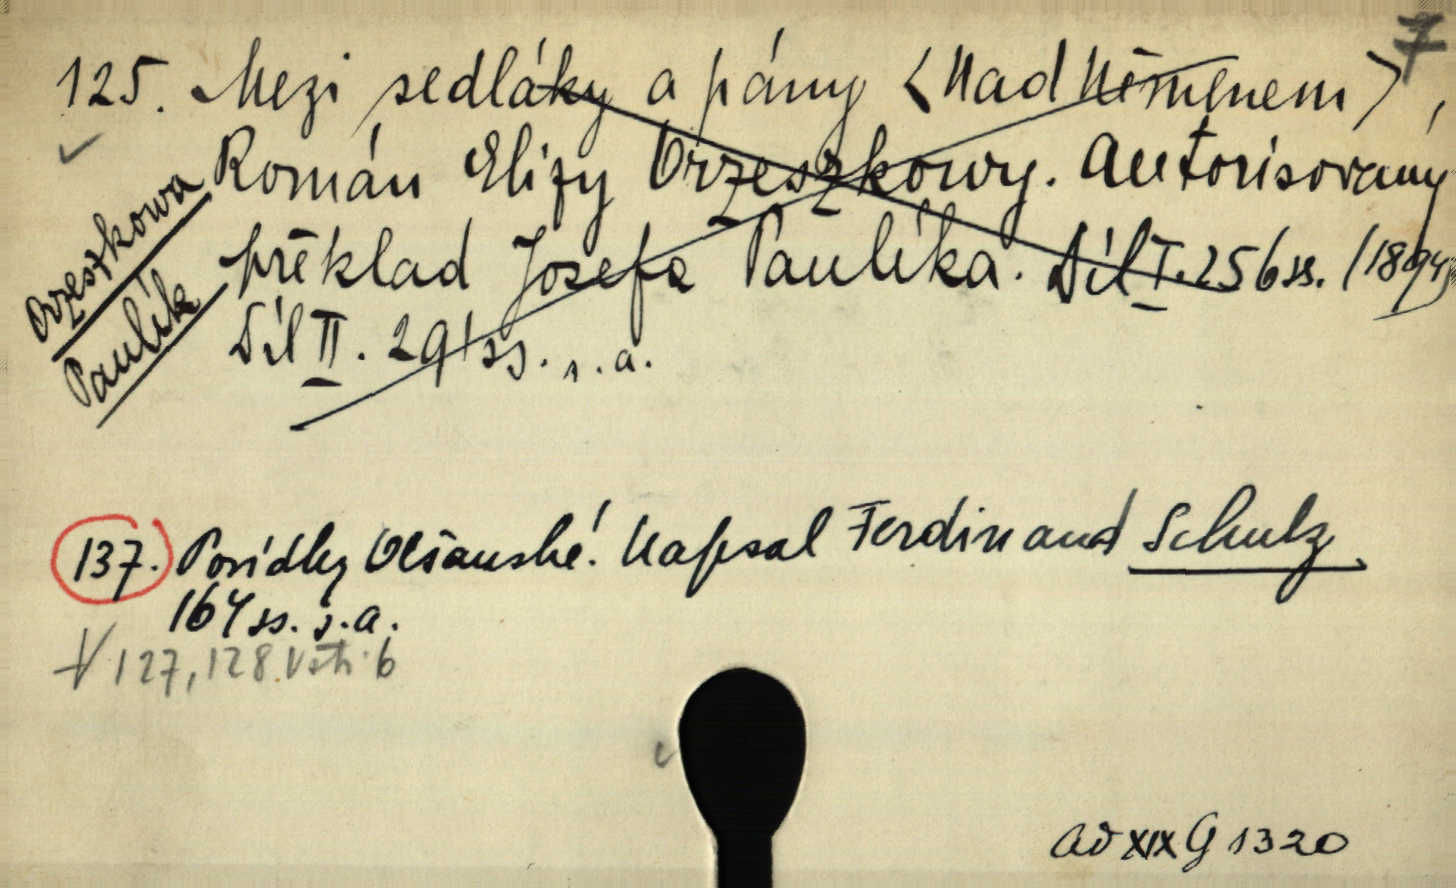 7
125. Mezi sedláky a pány <Nad Němenem>,
Román Elizy Orzeszkowy. Autorisovaný
překlad Josefa Paulíka. Díl I. 256 ss. (1894)
Díl II. 291 ss. s.a.
Orzeszkowa
Paulík
137. Povídky Olšanské. Napsal Ferdinand Schulz
164 ss. s.a.
V 127, 128. viz 6
ad XIX G 1320